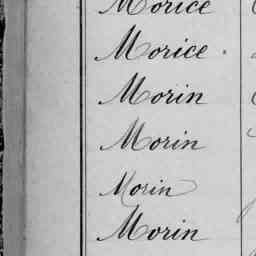 Morice
Morice
Morin
Morin
Morin
Morin